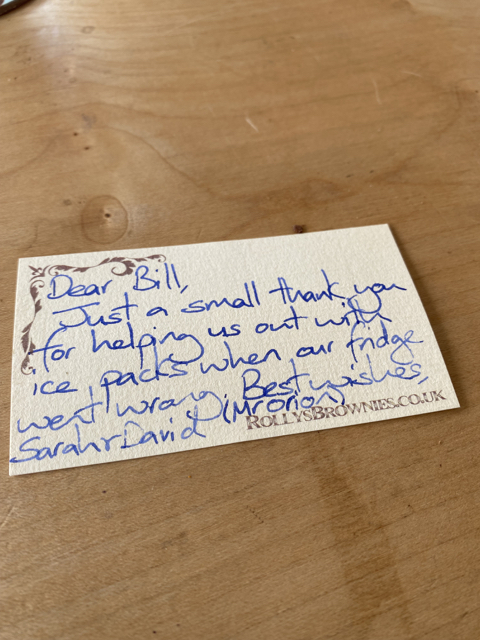 Dear Bill,
Just a small thank you
for helping us out with
ice packs when our fridge
went wrong. Best wishes,
Sarah + David (Mr Orion)
ROLLYSBROWNIES.CO.UK